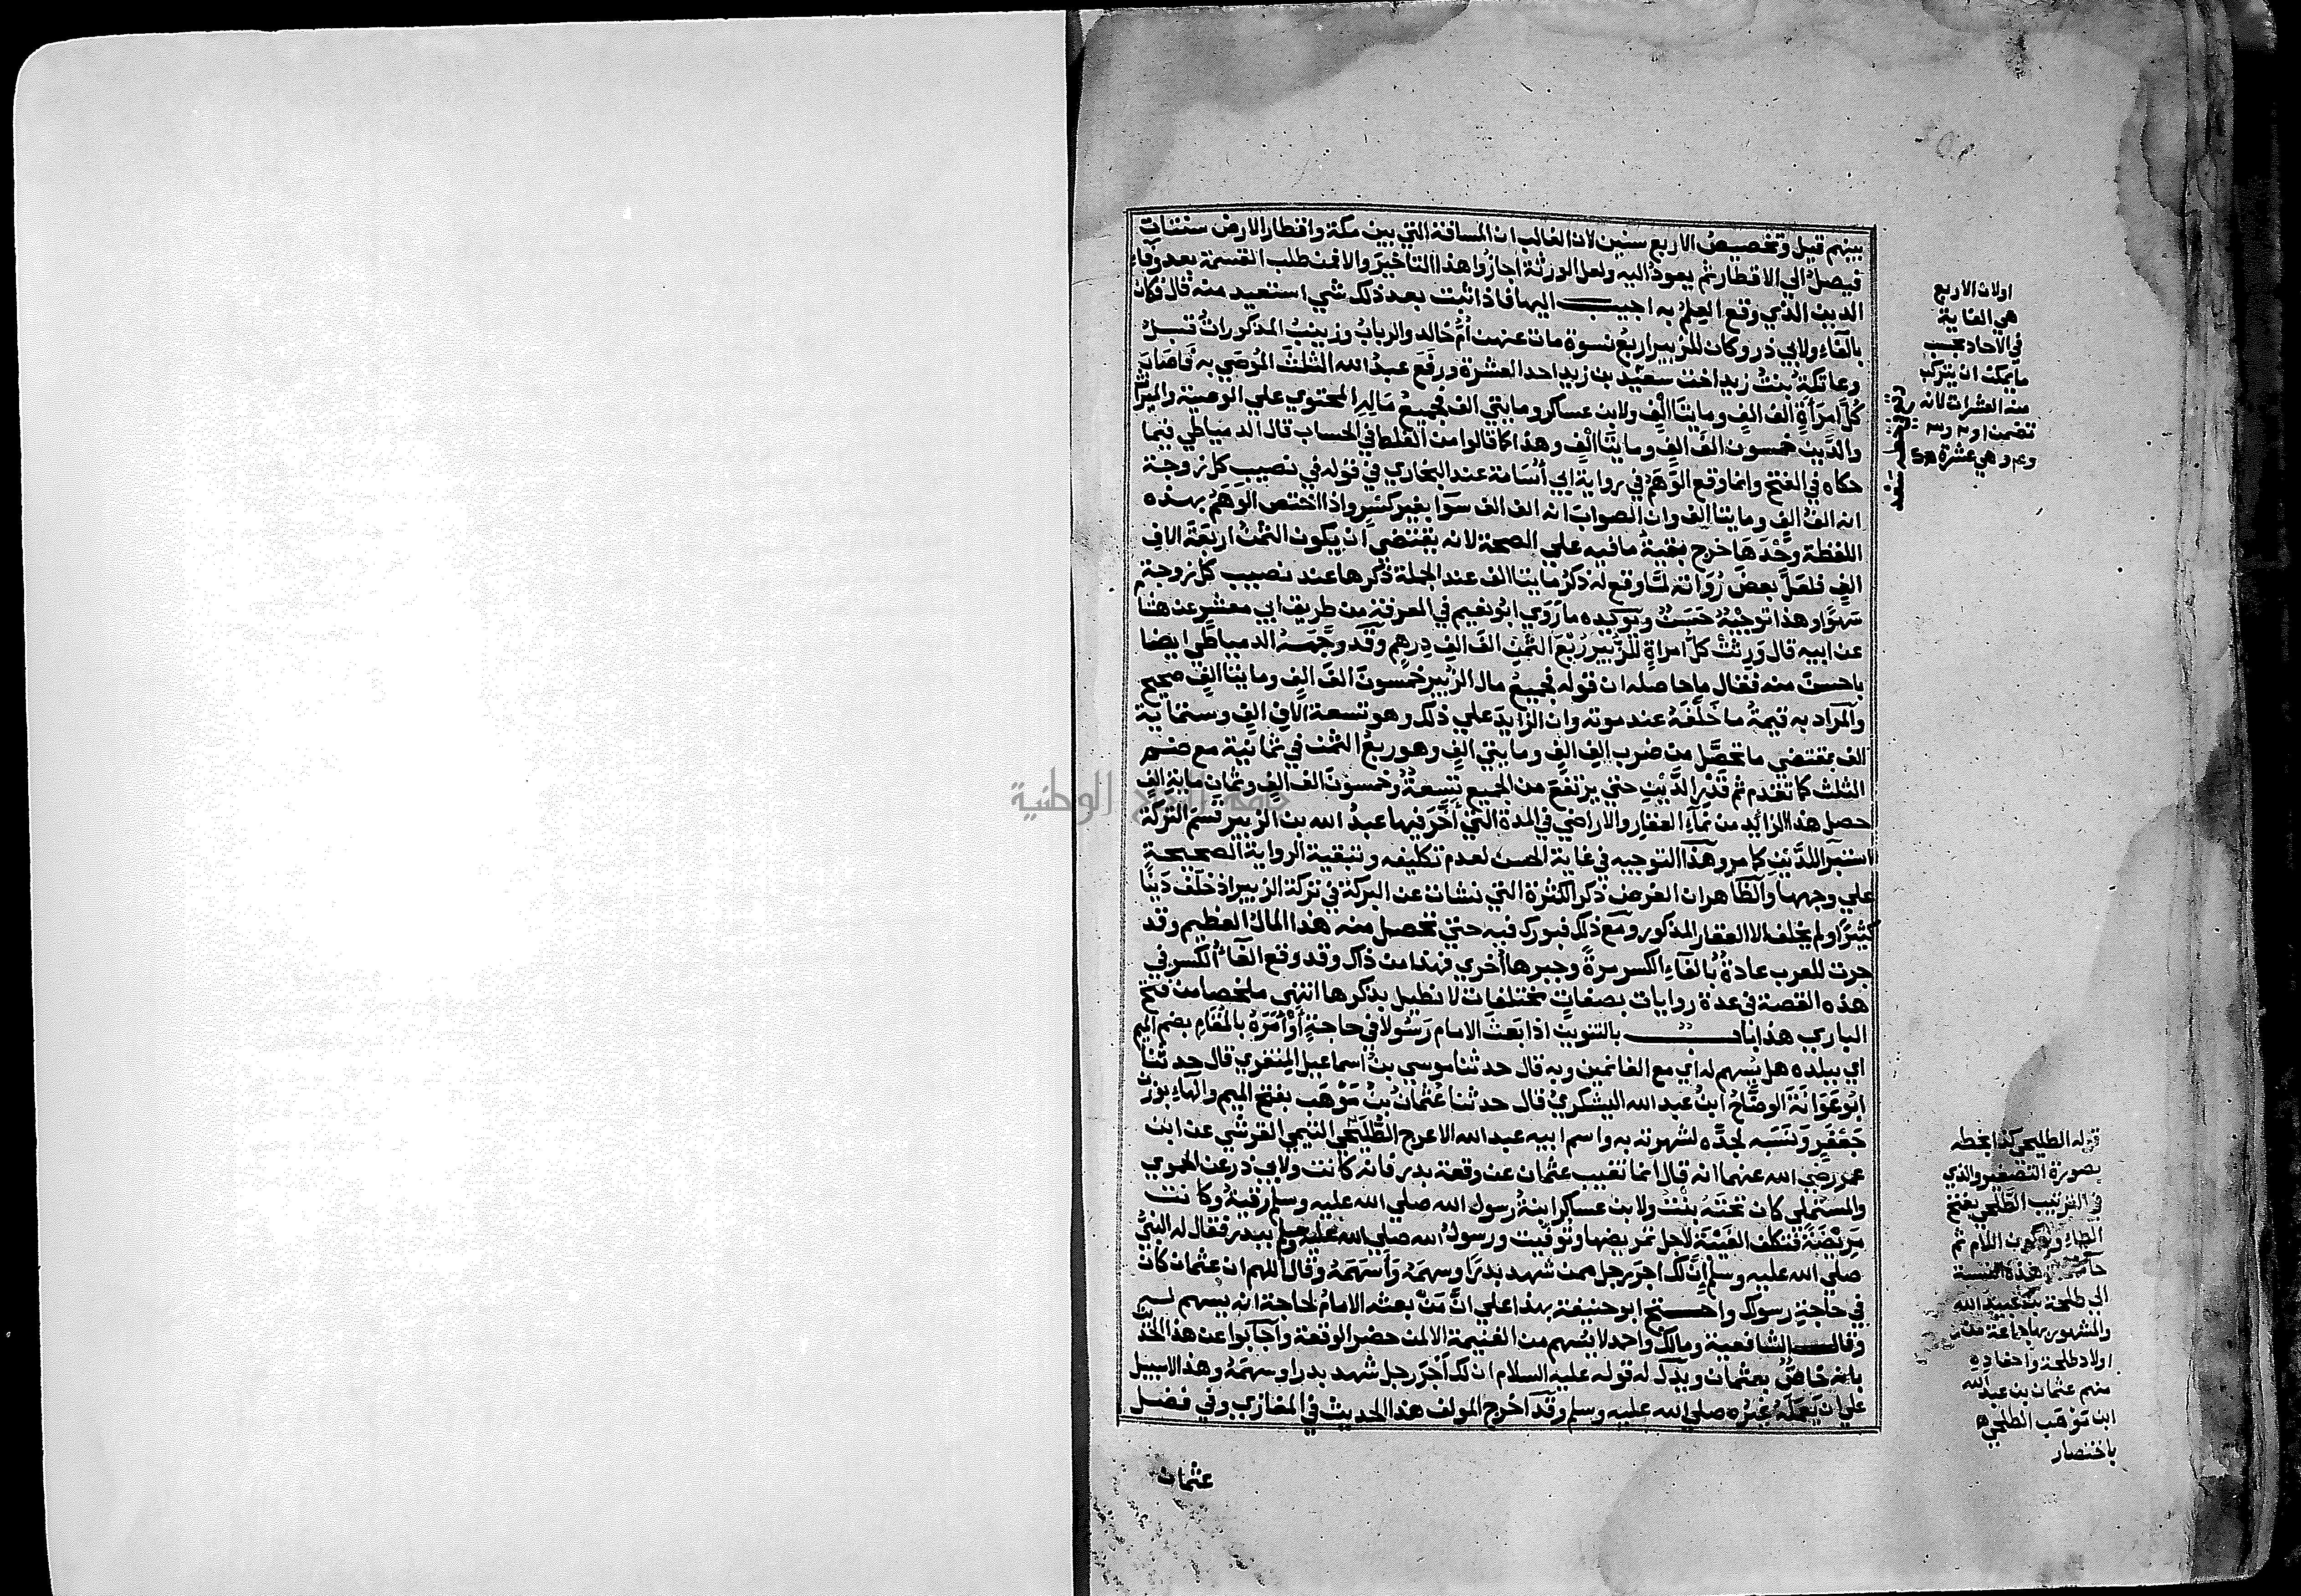 بينهم قيل وتخصيص الاربع سنين لان الغالب ان المسافة التي بين مكة واقطار الارض سنتان
فيصل الي الاقطار ثم يعود اليه ولعل الورثة اجازوا هذا التاخير والا فمن طلب القسمة بعد وفاء
الدين الذي وقع العلم به اجيب اليها فاذا ثبت بعد ذلك شي استعيد منه قال فكان
بالفاء ولابي ذر وكان للزبير اربع نسوة مات عنهن اُمّ خالد والرباب وزينب المذكورات قبل
وعاتكة بنت زيد اخت سعيد بن زيد احد العشرة ورفع عبد الله الثلث الموصي به فاصاب
كل امرأة الف الف ومايتا الف ولابن عساكر ومايتي الف فجميع ماله المحتوي علي الوصية والميراث
والدين خمسون الف الف ومايتا الف وهذا كما قالوا من الغلط في الحساب قال الدمياطي فيما
حكاه في الفتح وانما وقع الوهم في رواية ابي أسامة عند البخاري في قوله في نصيب كل زوجة
انه الف الف ومايتا الف وان الصواب انه الف الف سوآ بغير كسر واذا اختص الوهم بهذه
اللفظة وحدها خرج بقية ما فيه علي الصحة لانه يقتضي ان يكون الثمن اربعة الاف
الف فلعل بعض رواته لما وقع له ذكر مايتا الف عند الجملة ذكرها عند نصيب كل زوجة
سهوا وهذا توجيه حسن ويوكده ما روي ابو نعيم في المعرفة من طريق ابي معشر عن هشا
عن ابيه قال ورثت كل امراة للزبير ربع الثمن الف الف درهم وقد وجهه الدمياطي ايضا
باحسن منه فقال ما حاصله ان قوله فجميع مال الزبير خمسون الف الف ومايتا الف صحيح
والمراد به قيمة ما خلفه عند موته وان الزايد علي ذلك وهو تسعة الاف الف وستماية
الف بمقتضي ما تحصل من ضرب الف الف ومايتي الف وهو ربع الثمن في ثمانية مع ضم
الثلث كما تقدم ثم قدر الدين حتي يرتفع من الجميع تسعة وخمسون الف الف وثمان ماية الف
حصل هذا الزائد من نماء العقار والاراضي في المدة التي أخر فيها عبد الله بن الزبير قسم التركة
استبرا للدين كما مر وهذا التوجيه في غاية الحسن لعدم تكليفه وتبقية الرواية الصحيحة
علي وجهها والظاهر ان الغرض ذكر الكثرة التي نشات عن البركة في تركة الزبير اذ خلف دينا
كثيرا ولم يخلف الا العقار المذكور ومع ذلك فبورك فيه حتي تحصل منه هذا المال العظيم وقد
جرت للعرب عادة بالغاء الكسر مرة وجبرها أخري فهذا من ذاك وقد وقع الغاء الكسر في
هذه القصة في عدة روايات بصفات مختلفات لا نطيل بذكرها انتهي ملخصا من فتح
الباري هذا باب بالتنوين اذا بعث الامام رسولا في حاجة أو أمره بالمقام بضم الميم
اي ببلده هل يسهم له اي مع الغانمين وبه قال حدثنا موسي بن اسماعيل المنقري قال حدثنا
ابو عوانة الوضاح ابن عبد الله اليشكري قال حدثنا عثمان بن موهب بفتح الميم والهاء بوزن
جعفر ونسبه لجده لشهرته به واسم ابيه عبد الله الاعرج الطليحي التيمي القرشي عن ابن
عمر رضي الله عنهما انه قال انما تغيب عثمان عن وقعة بدر فانه كانت ولابي ذر عن الحموي
والمستملي كان تحته بنت ولابن عساكر ابنة رسول الله صلي الله عليه وسلم رقية وكانت
مريضة فتكلف الغيبة لاجل تمريضها وتوفيت ورسول الله صلي الله عليه وسلم ببدر فقال له النبي
صلي الله عليه وسلم إن لك اجر رجل ممن شهد بدرا وسهمه وأسهمه وقال اللهم ان عثمان كان
في حاجة رسولك واحتج ابو حنيفة بهذا علي ان من بعثه الامام لحاجة انه يسهم له
وقال الشافعية ومالك واحمد لا يسهم من الغنيمة الا لمن حضر الوقعة واجابوا عن هذا الحديث
بانه خاص بعثمان ويدل له قوله عليه السلام ان لك أجر رجل شهد بدرا وسهمه وهذا لا سبيل
علي ان يعمله غيره صلي الله عليه وسلم وقد اخرج المولف هذا الحديث في المغازي وفي فضل
عثمان
او لان الاربع
هي الغاية
في الاحاد بحسب
ما يمكن ان يتركب
منه العشرات لانه
تضمن او ٢ و٣
و٤ وهي عشرة
قوله الطليحي كذا بخطه
بصورة التصغير والذي
في الترتيب الطلحي بفتح
الطاء وسكون اللام ثم
حاء هذه النسبة
الي طلحة بن عبيد الله
والمشهور بها جماعة من
اولاد طلحة واحفاده
منهم عثمان بن عبد الله
ابن موهب الطلحي
باختصار
جامعة النجاح الوطنية